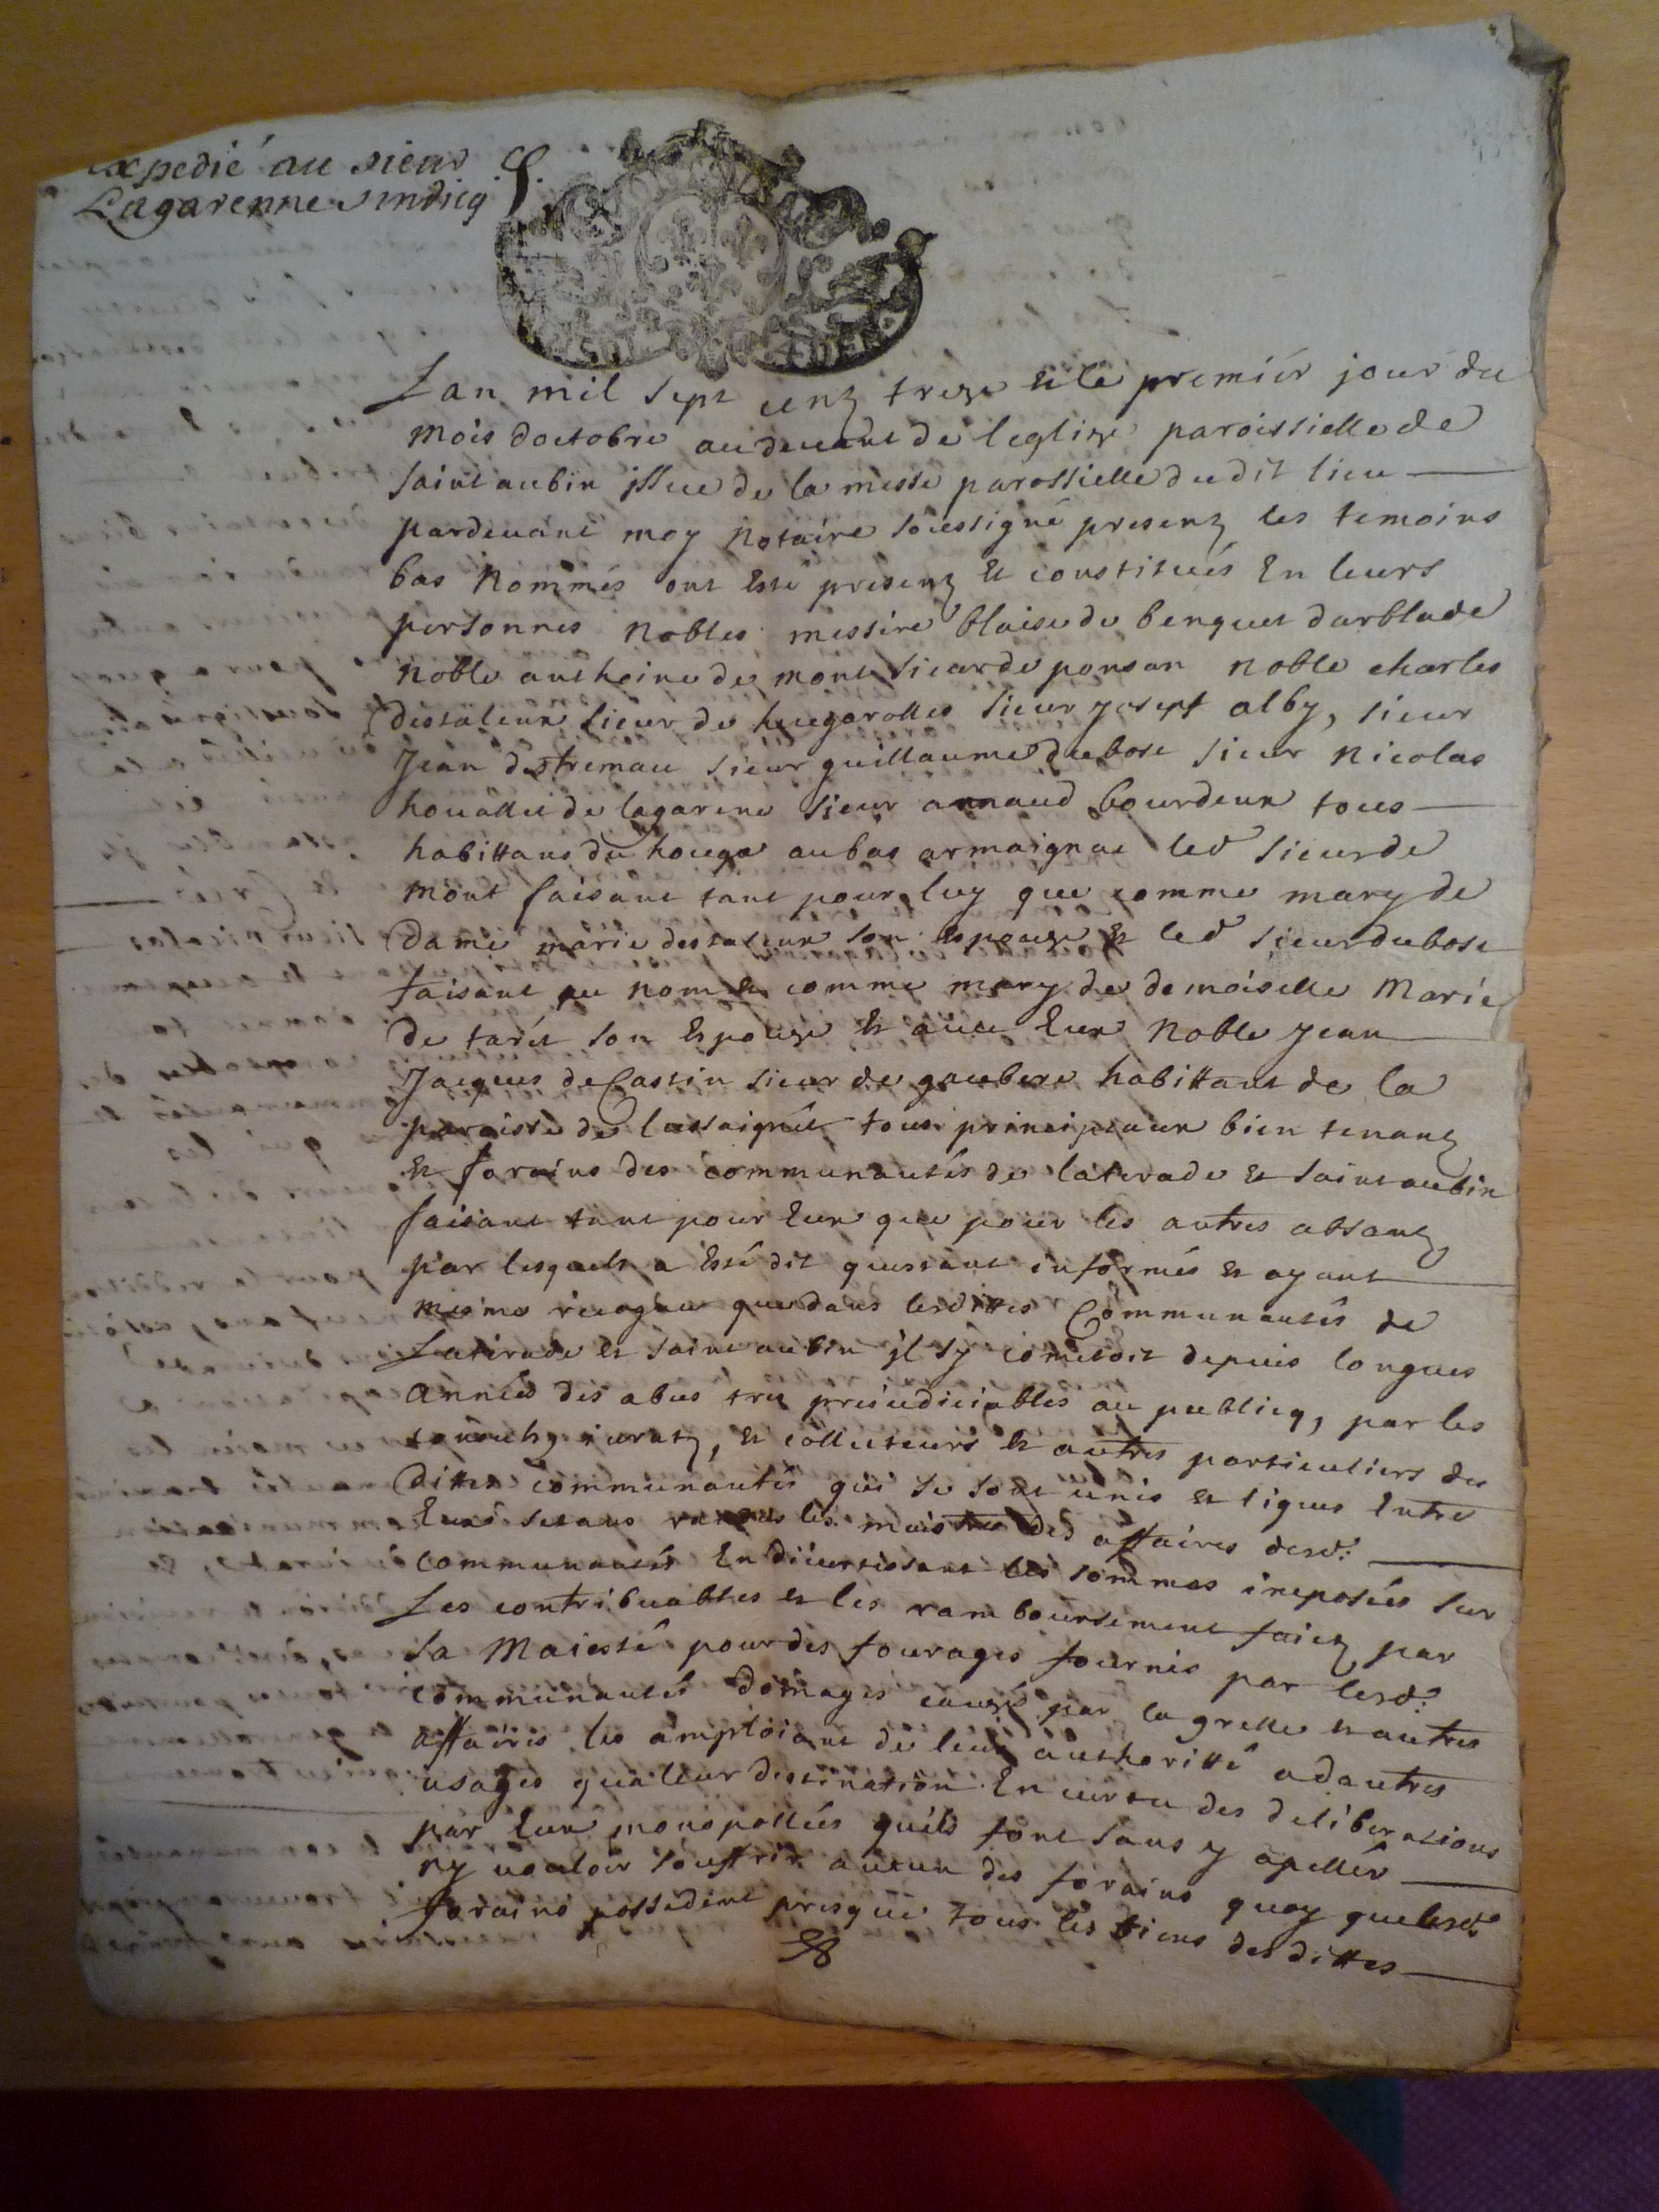 expedié au sieur
Lagarenne sindicq
Lan mil sept cenz treze et le premiér jour du
mois doctobre au devant de leglize paroissielle de
saint aubin issue de la messe parossielle dudit lieu
pardevant moy notaire soussigné presenz les temoins
bas nommés ont esté presenz et constitués en leurs
personnes nobles messire blaise de benquet darblade
noble anthoine de mont sieur de ponsan noble charles
dessaleux sieur de hugarolles sieur josept alby, sieur
jean destremau sieur guillaume dubosc sieur nicolas
houallet de lagarene sieur arnaud bourdeux tous
habittans du houga au bas armaignac led sieur de
mont faisant tant pour luy que comme mary de
dame marie dessaleux son espouze et led sieur dubosc
faisant au nom et comme mary de demoiselle marie
de taret son espouze et avec eux noble jean
jacques de cassin sieur de gaubere habittant de la
paroisse de lussaignét tous principaux bien tenanz
et forains des communautés de laterade et saint aubin
faisant tant pour eux que pour les autres absanz
par lesquels a esté dit questant informés et ayant
mesme que dans lesdittes communautés de
Laterade et saint aubin jl sy cometoit depuis longues
années des abus tres preiudiciables au publicq, par les
iuratz, et collecteurs et autres particuliers des
dittes communautés qui se sont unis et ligues entre
eux setans randus les maistres des affaires desd:
communautés en divertissant les sommes imposées sur
Les contribuables et les ramboursement faicz par
sa Maiesté pour des fourages fournis par lesd:
communautés domages causé par la grelle et autres
affairés les amploiant de leur authoritté a dautres
usages qua leur destination en vertu des deliberations
par eux monopollées quils font sans y apellér
ny vouloir souffrir aucun des forains quoy que lesd:
forains possedent presque tous les biens desdittes